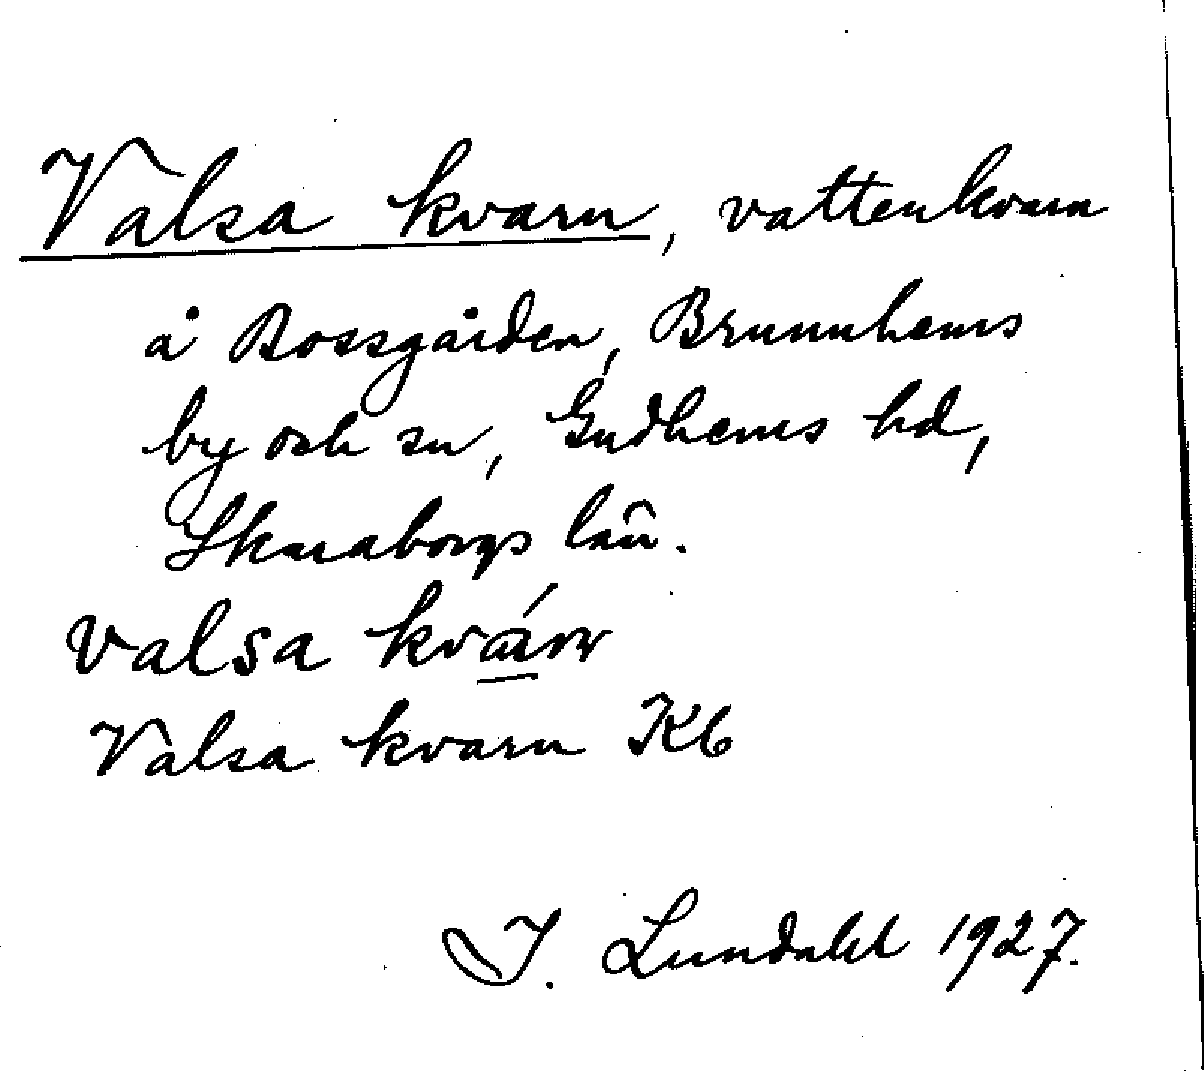 Valsa kvarn, vattenkvarn
å Bossgården, Brunnhems
by och sn, Gudhems hd,
Skaraborgs län.
valsa
Valsa kvarn Kb
I. Lundahl 1927.